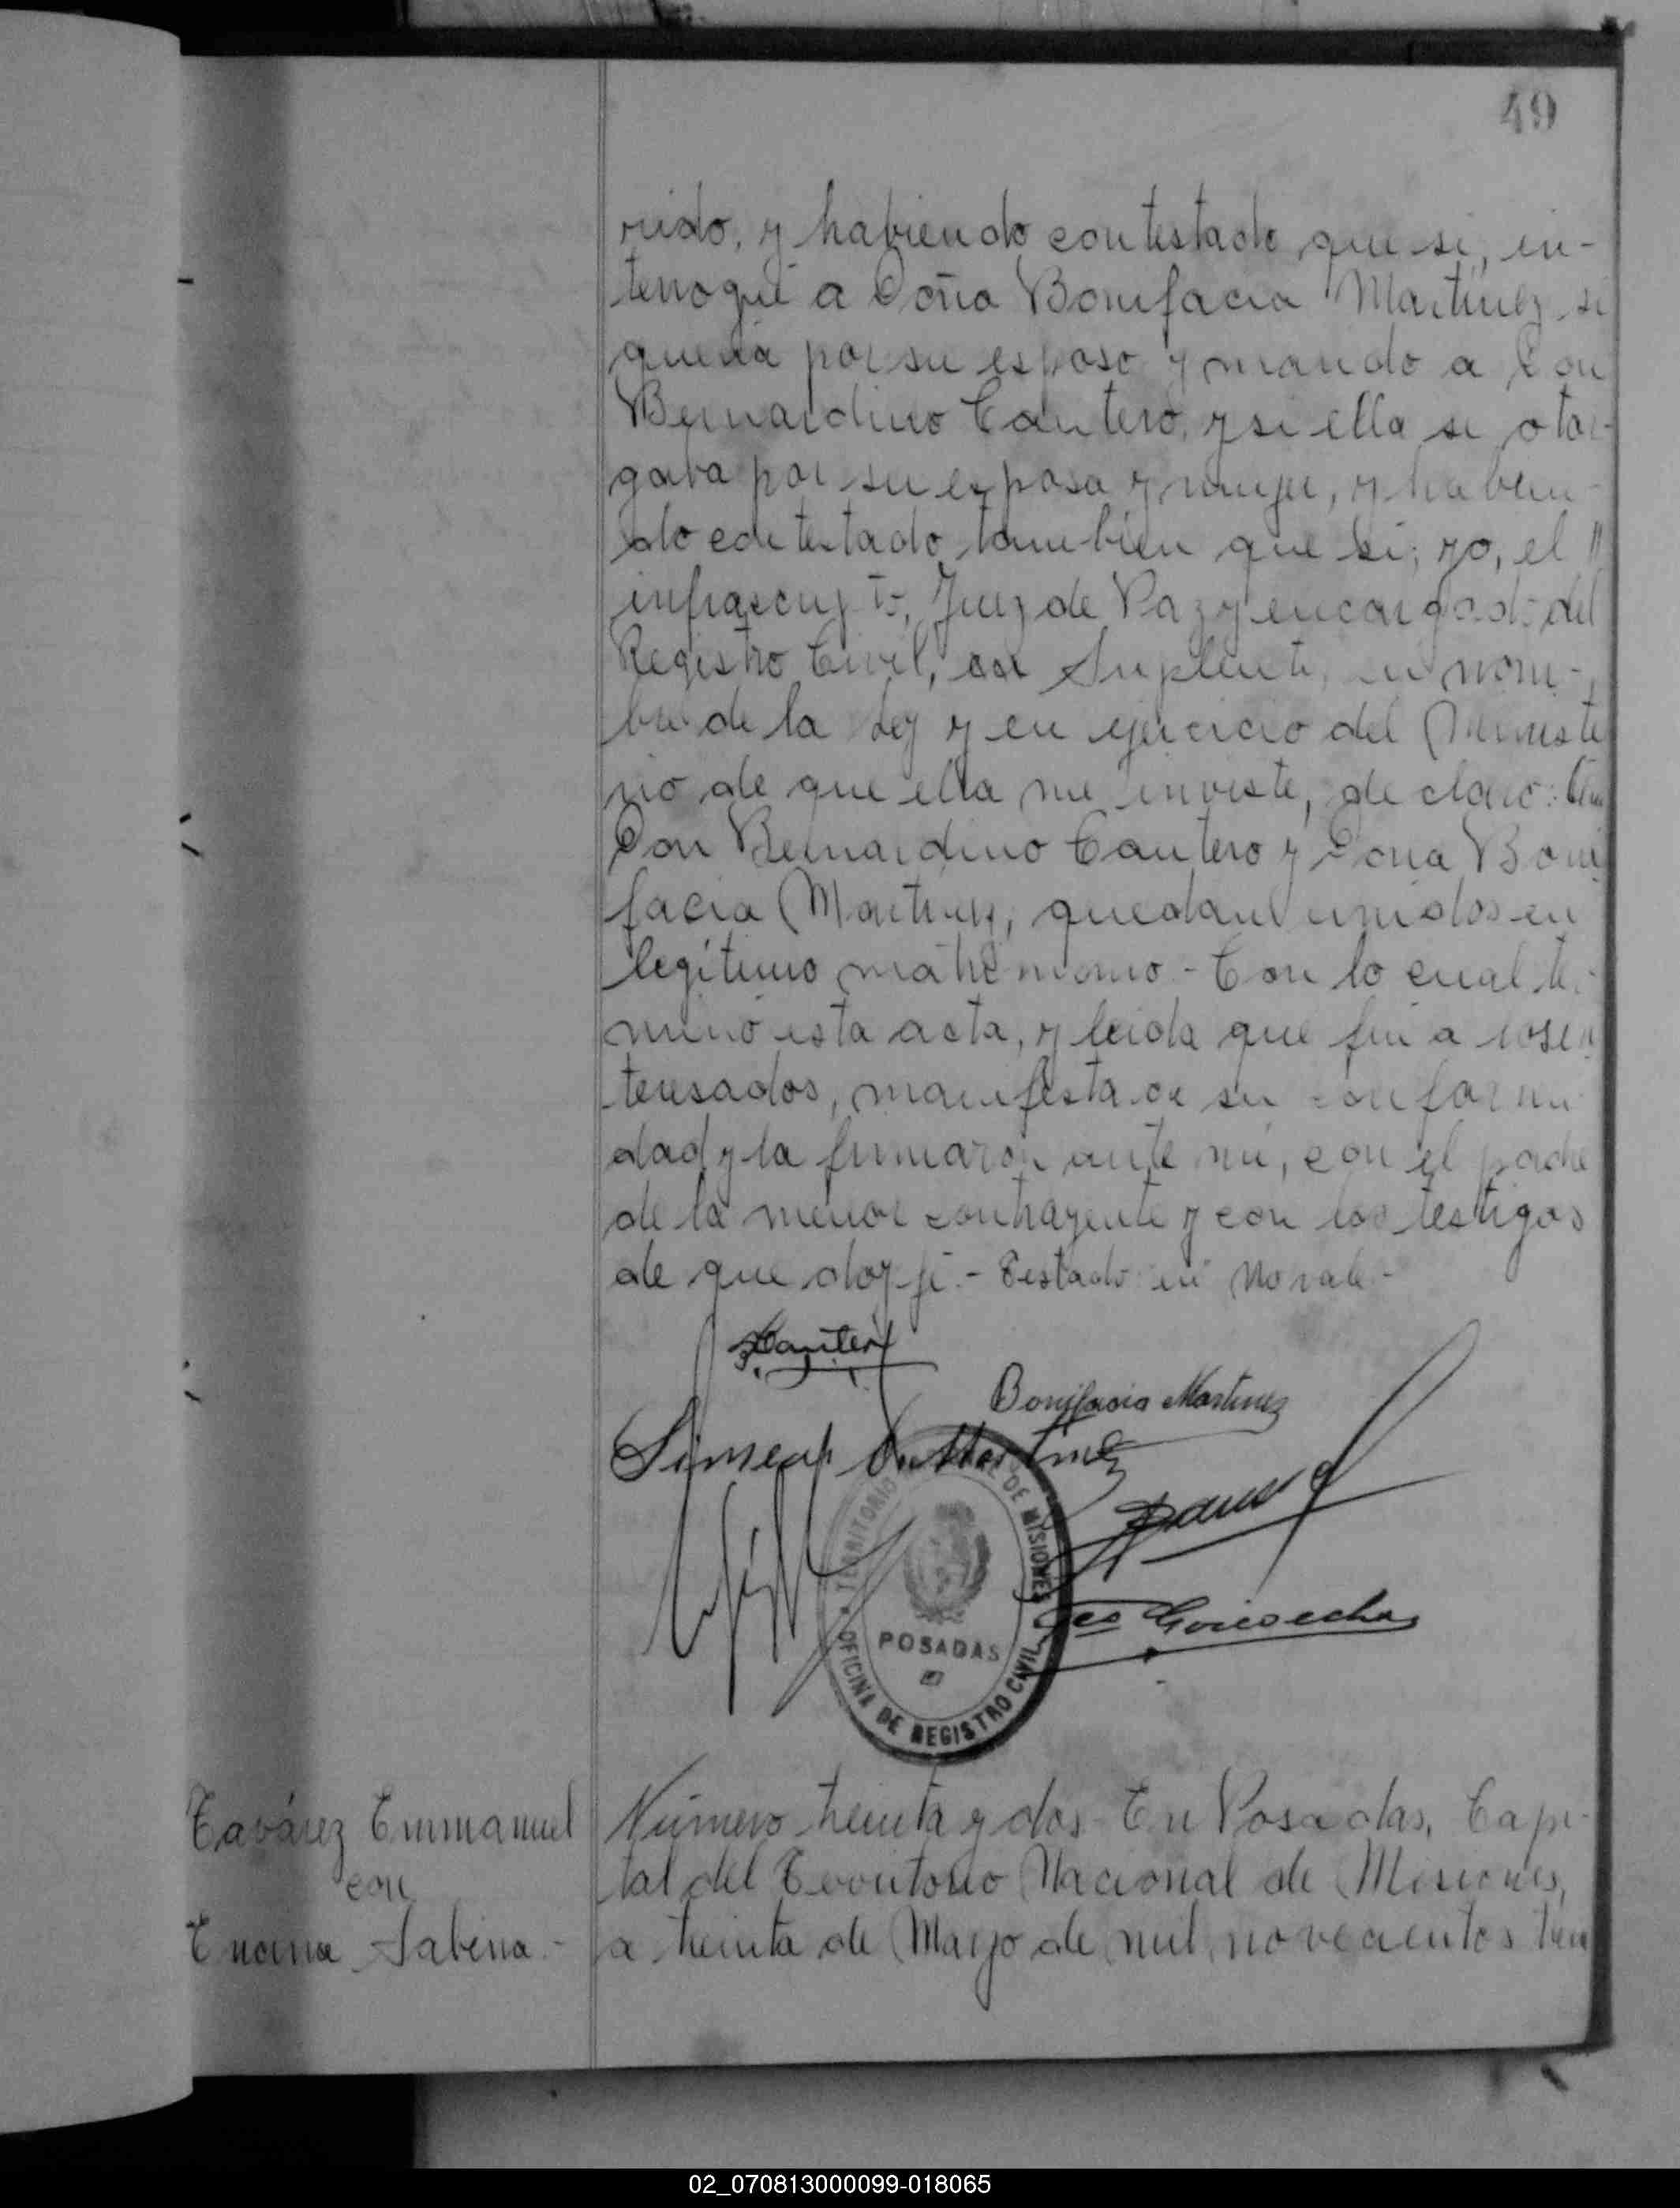 49
rido, y habiendo contestado que si, in-
terrogué a Doña Bonifacia Martínez si
quería por su esposo y marido a Don
Bernardino Cantero, y si ella se otor-
gaba por su esposa y mujer, y habien-
do contestado tambien que si; yo, el
infrascripto, Juez de Paz y encargado del
Registro Civil, Suplente, en nom-
bre de la Ley y en ejercicio del Ministe
rio de que ella me inviste, declaro: Que
Don Bernardino Cantero y Doña Boni
facia Martínez, quedan unidos en
legítimo matrimonio - Con lo cual ter-
minó esta acta, y leida que fué a los in
teresados, manifestaron su conformi-
dad y la firmaron ante mi, con el padre
de la menor contrayente y con los testigos
de que doy fé.- Testado: en No vale.-
Cantero
Bonifacia Martinez
Simeon Martinez
TERRITORIO DE MISIONES
POSADAS
OFICINA DE REGISTRO CIVIL
Goicoechea
Tavárez Emmanuel
con
Encina Sabina.-
Número treinta y dos - En Posadas, Capi-
tal del Territorio Nacional de Misiones,
a treinta de Mayo de mil novecientos trein
02_070813000099-018065